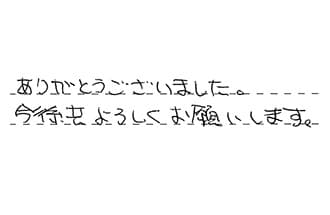 ありがとうございました。
今後共よろしくお願いします。